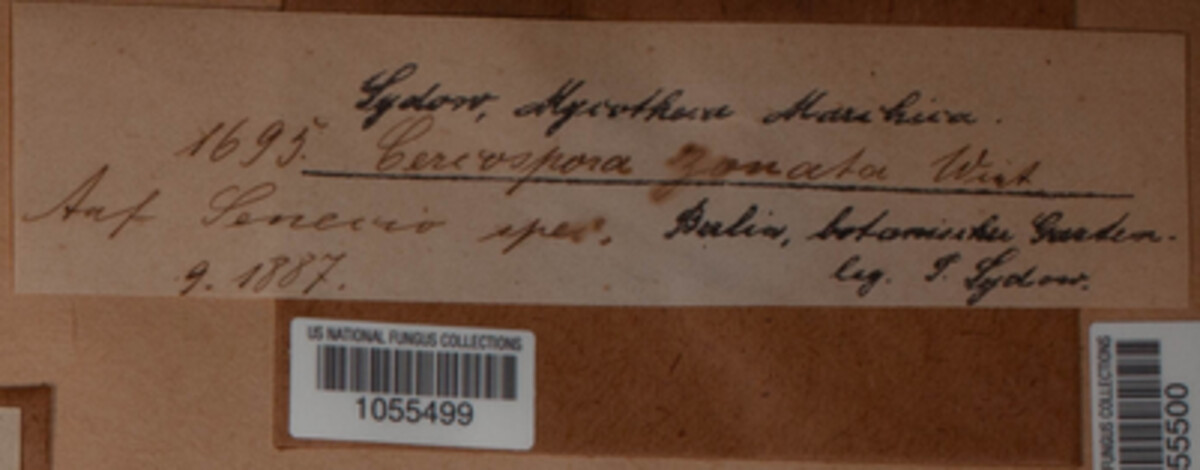 Sydow, Mycotheca Marchica.
1695. Cercospora zonata Wint.
Auf Senecio spec. Berlin, botanischer Garten.
9. 1887. leg. P. Sydow.
US NATIONAL FUNGUS COLLECTIONS
1055499
FUNGUS COLLECTIONS
55500